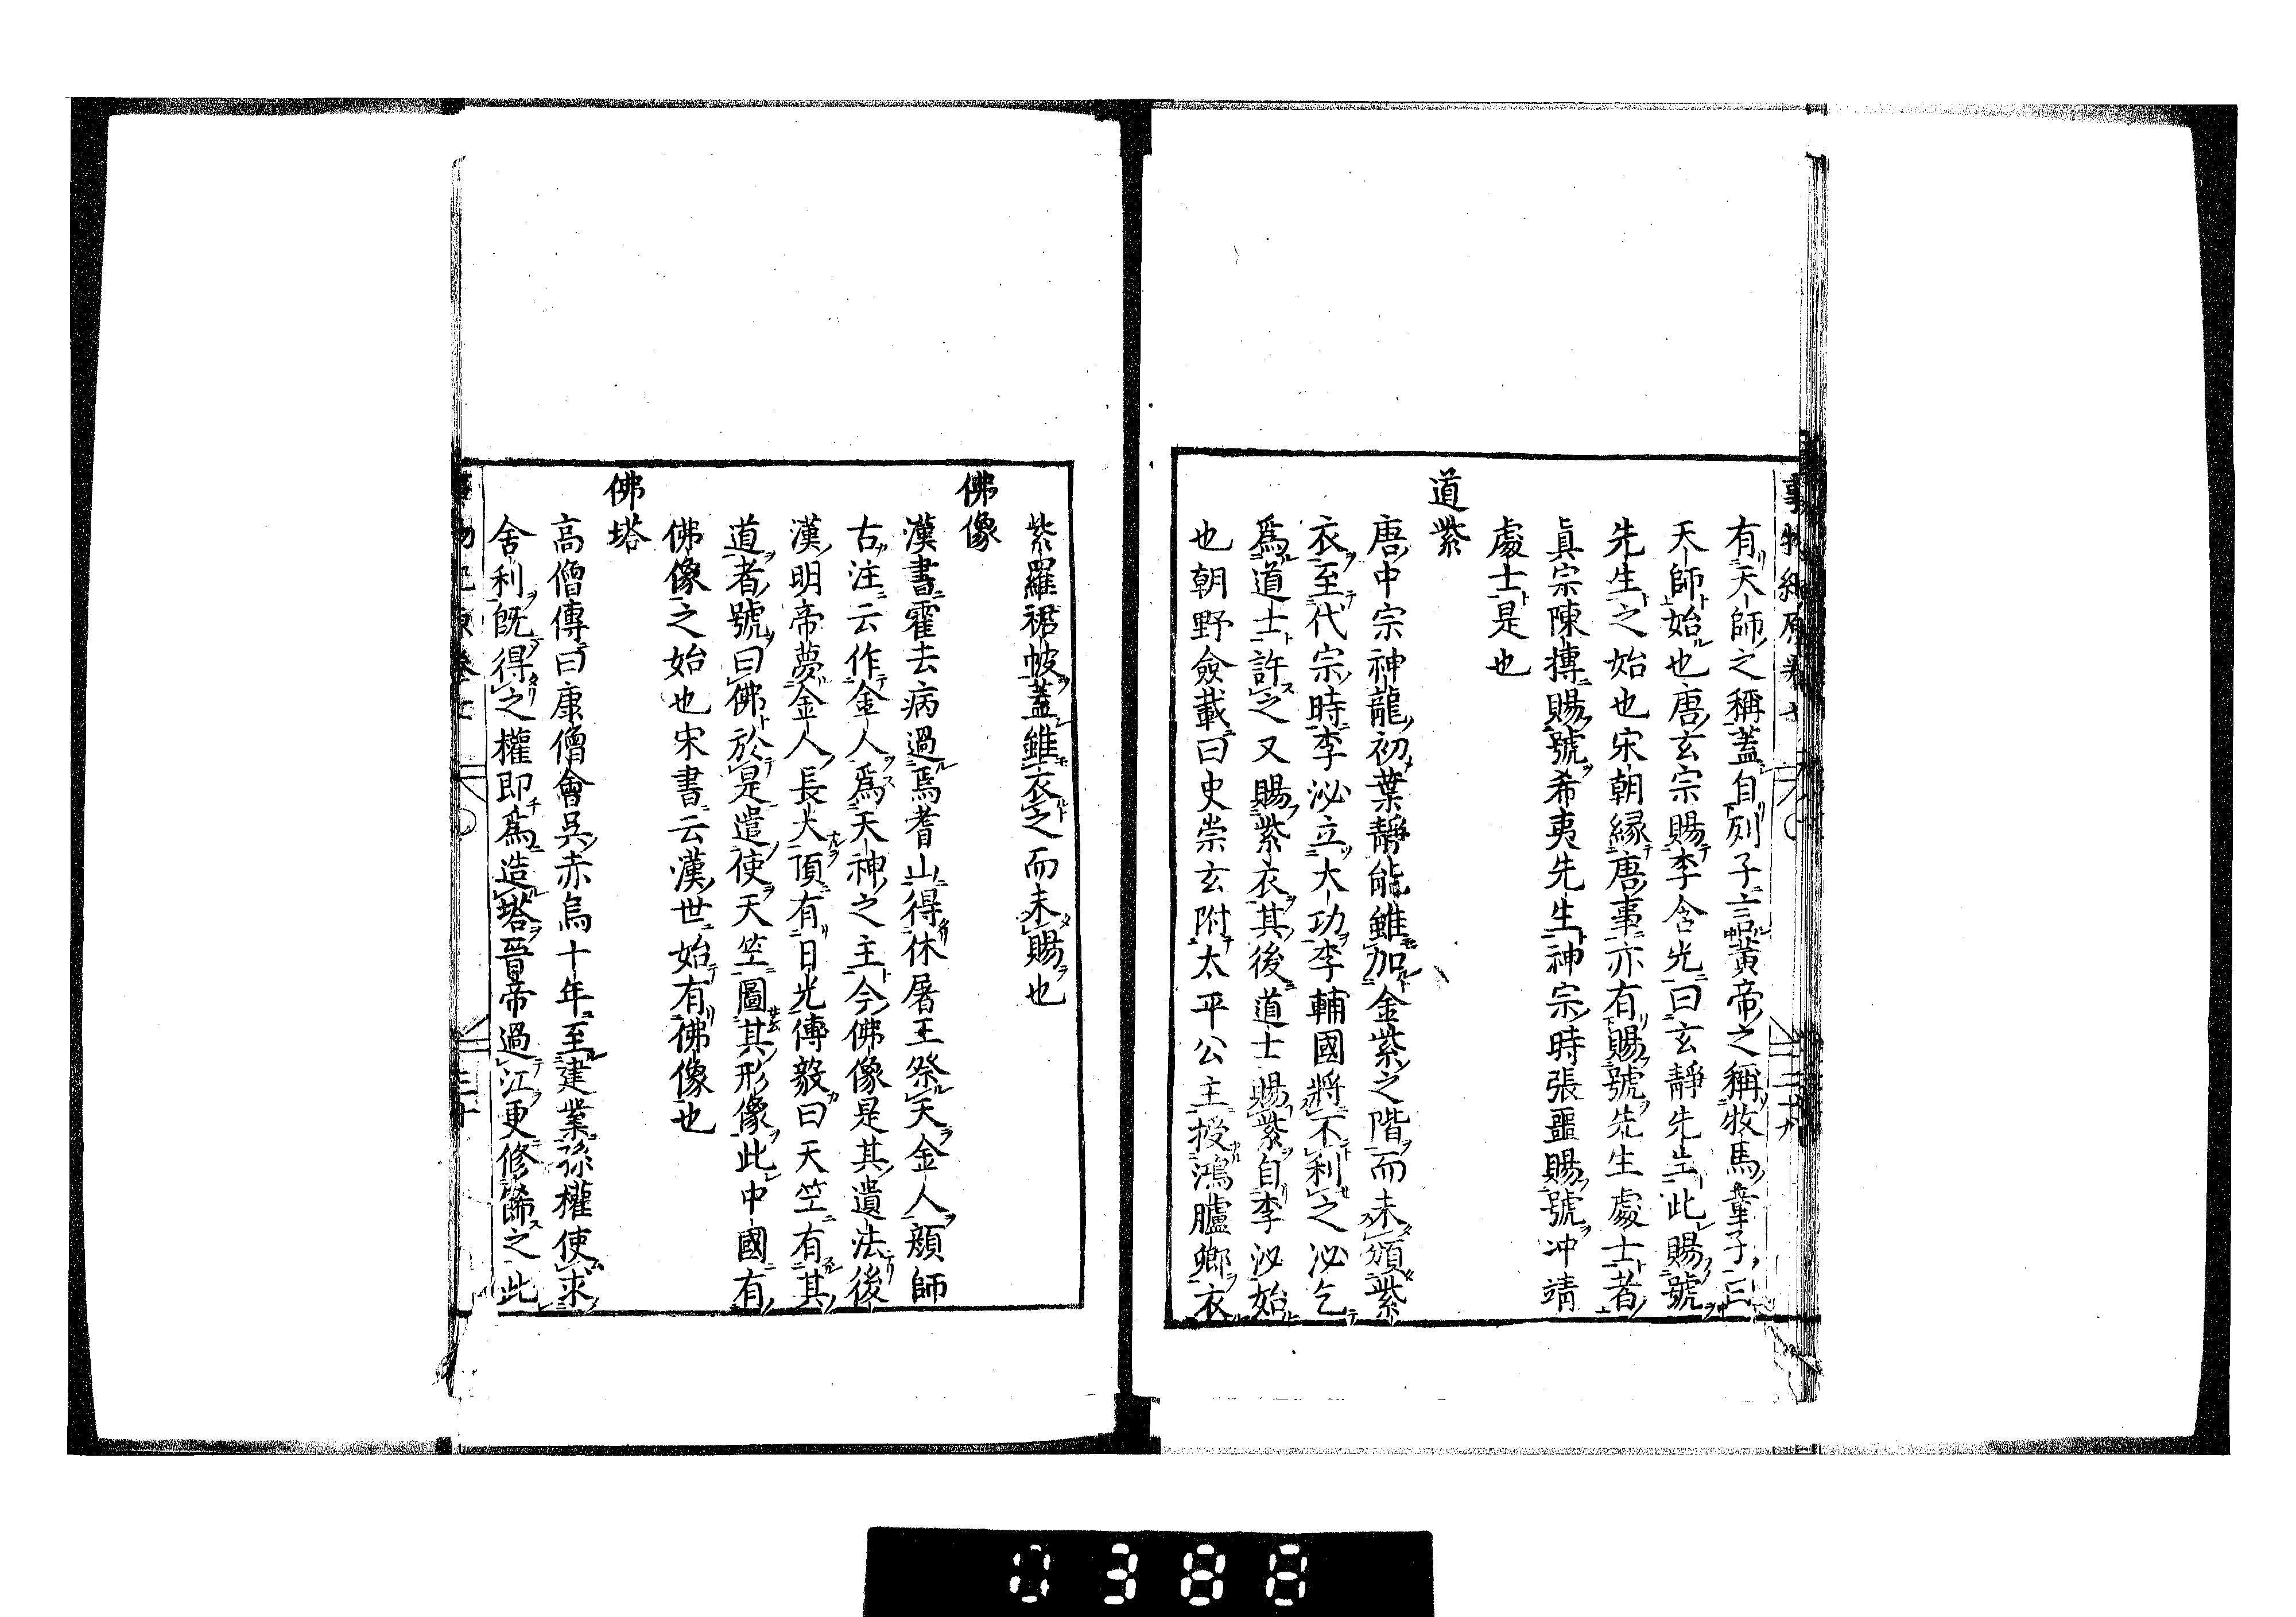 事物紀原卷七
有天師之稱蓋自列子言黃帝之稱牧馬童子
天師始也唐玄宗賜李含光曰玄靜先生此賜號
先生之始也宋朝縁唐事亦有賜號先生處士者
眞宗陳摶賜號希夷先生神宗時張噩賜號冲靖
處士是也
道紫
唐中宗神龍初葉靜能雖加金紫之階而未頒紫
衣至代宗時李泌立大功李輔國將不利之泌乞
爲道士許之又賜紫衣其後道士賜紫自李泌始
也朝野僉載曰史崇玄附太平公主授鴻臚卿衣
紫羅裙帔蓋雖衣之而未賜也
佛像
漢書霍去病過焉耆山得休屠王祭天金人顔師
古注云作金人爲天神之主今佛像是其遺法後
漢明帝夢金人長大頂有日光傅毅曰天竺有其
道者號曰佛於是遣使天竺圖其形像此中國有
佛像之始也宋書云漢世始有佛像也
佛塔
高僧傳曰康僧會吳赤烏十年至建業孫權使求
舍利既得之權即爲造塔晉帝過江更修飾之此
三十
0388